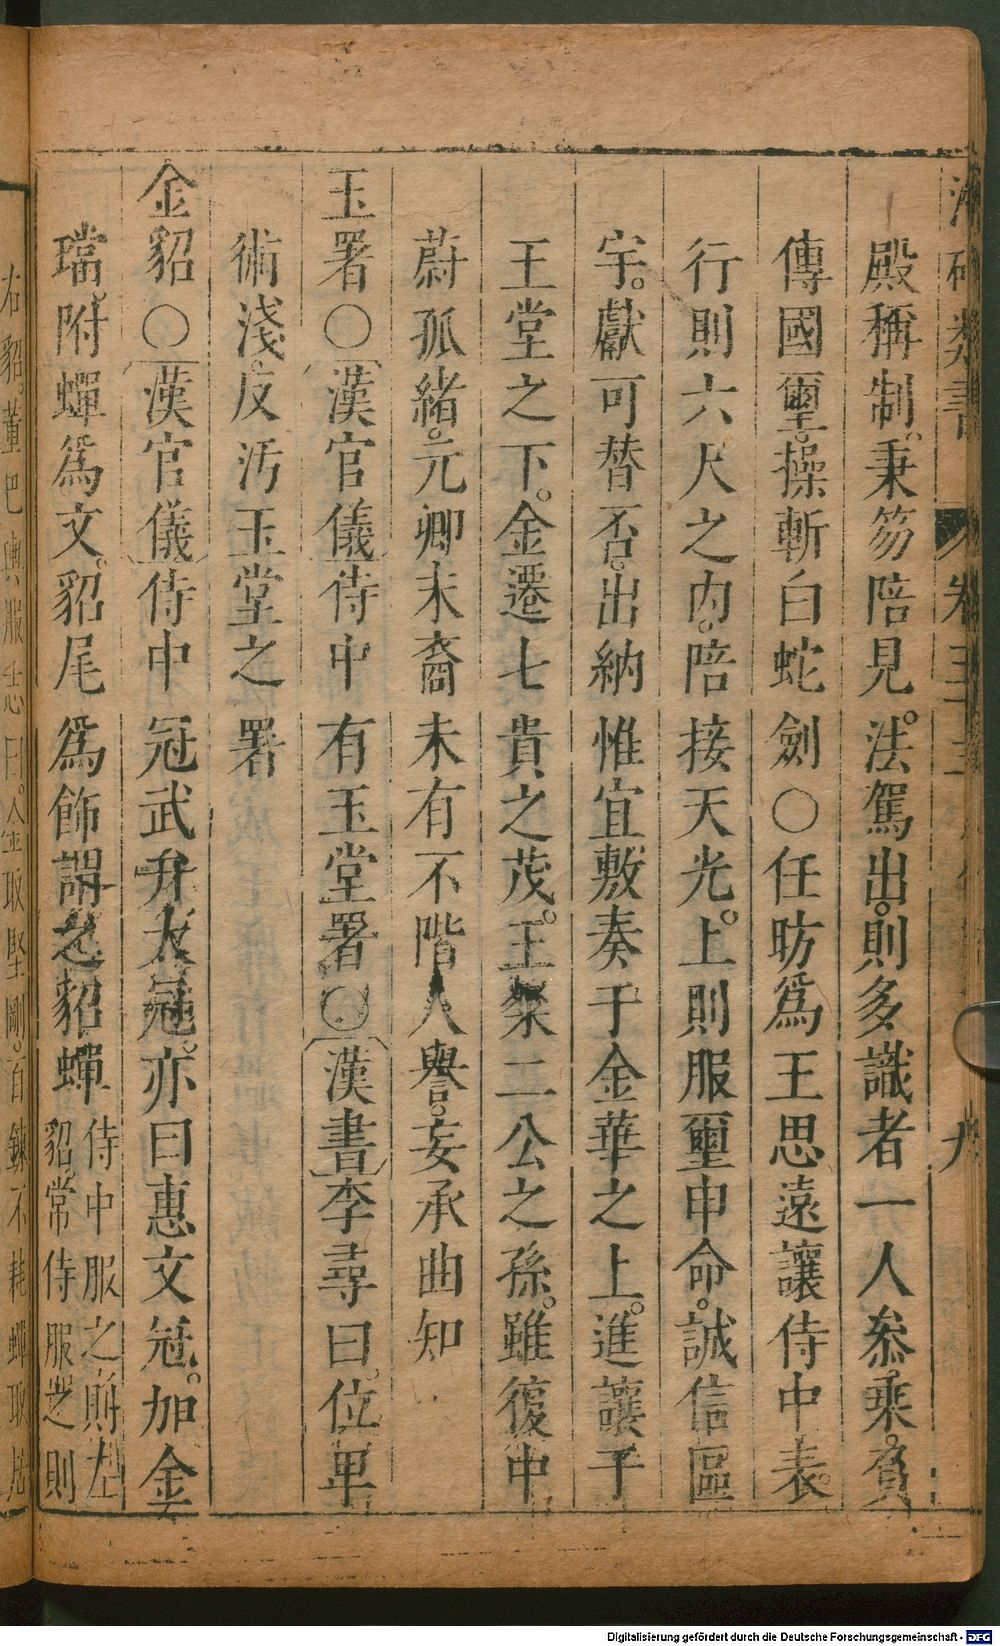 類書 卷三十 九
殿稱制。秉笏陪見。法駕出。則多識者一人叅乘。負
傳國璽。操斬白蛇劍○任昉爲王思遠讓侍中表。
行則六尺之内。陪接天光。上則服璽申命。誠信區
宇。獻可替否。出納惟宜敷奏于金華之上。進讓于
王堂之下。金遷七貴之茂。王粲二公之孫。雖復中
蔚孤緒。元卿末裔未有不階人譽。妄承曲知
玉署○漢官儀侍中有玉堂署○漢書李尋曰。位卑
術淺。反汚玉堂之署
金貂○漢官儀侍中冠武弁大冠。亦曰惠文冠。加金
璫。附蟬爲文。貂尾爲飾謂之貂蟬侍中服之則左
貂。常侍服之則
右貂。董巴輿服志曰。金取堅剛。百鍊不耗蟬取居
Digitalisierung gefördert durch die Deutsche Forschungsgemeinschaft - DFG